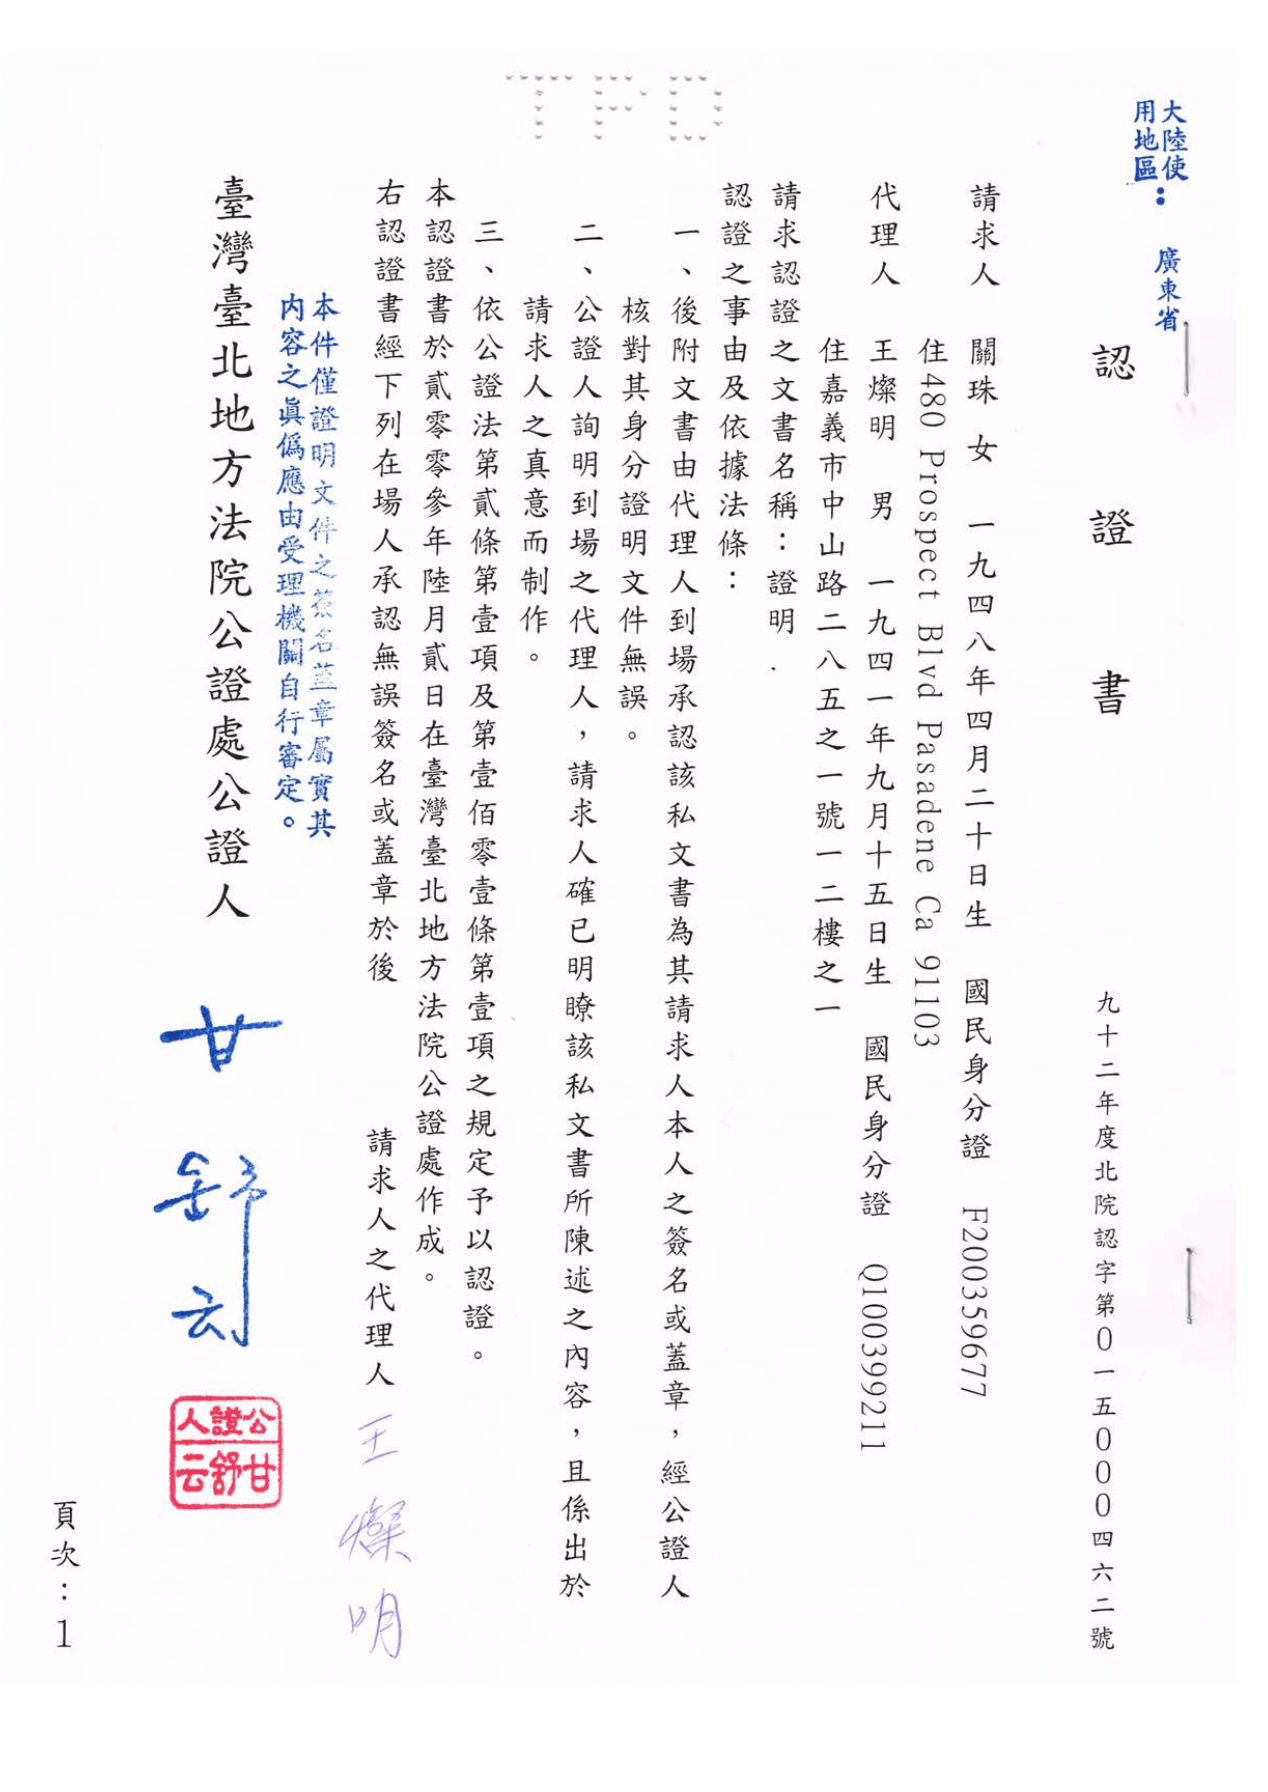 TPD
大陸使
用地區：廣東省
認證書
九十二年度北院認字第0一五000四六二號
請求人 關珠 女 一九四八年四月二十日生 國民身分證 F200359677
住480 Prospect Blvd Pasadene Ca 91103
代理人 王燦明 男 一九四一年九月十五日生 國民身分證 Q100399211
住嘉義市中山路二八五之一號一二樓之一
請求認證之文書名稱：證明.
認證之事由及依據法條：
一、後附文書由代理人到場承認該私文書為其請求人本人之簽名或蓋章，經公證人
核對其身分證明文件無誤。
二、公證人詢明到場之代理人，請求人確已明瞭該私文書所陳述之內容，且係出於
請求人之真意而制作。
三、依公證法第貳條第壹項及第壹佰零壹條第壹項之規定予以認證。
本認證書於貳零零參年陸月貳日在臺灣臺北地方法院公證處作成。
右認證書經下列在場人承認無誤簽名或蓋章於後
請求人之代理人 王燦明
本件僅證明文件之簽名蓋章屬實其
內容之眞僞應由受理機關自行審定。
臺灣臺北地方法院公證處公證人 甘舒云
公證人
甘舒云
頁次：1